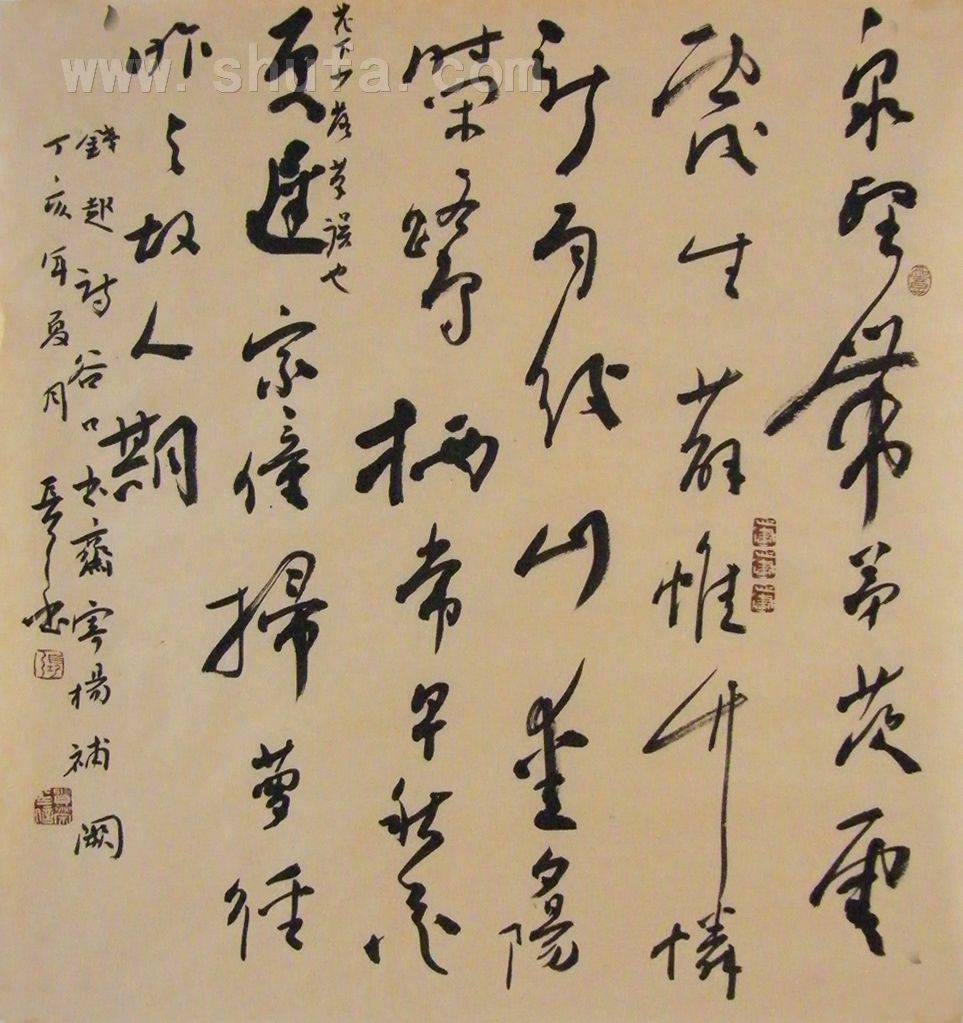 泉壑帶茅茨雲
霞生薜帷竹憐
新雨後山愛夕陽
時閒鷺栖常早秋花
花下少落草誤也
更遲家僮掃萝徑
昨與故人期
錢起詩谷口書齋寄楊補闕
丁亥年夏月
www.shufa.com